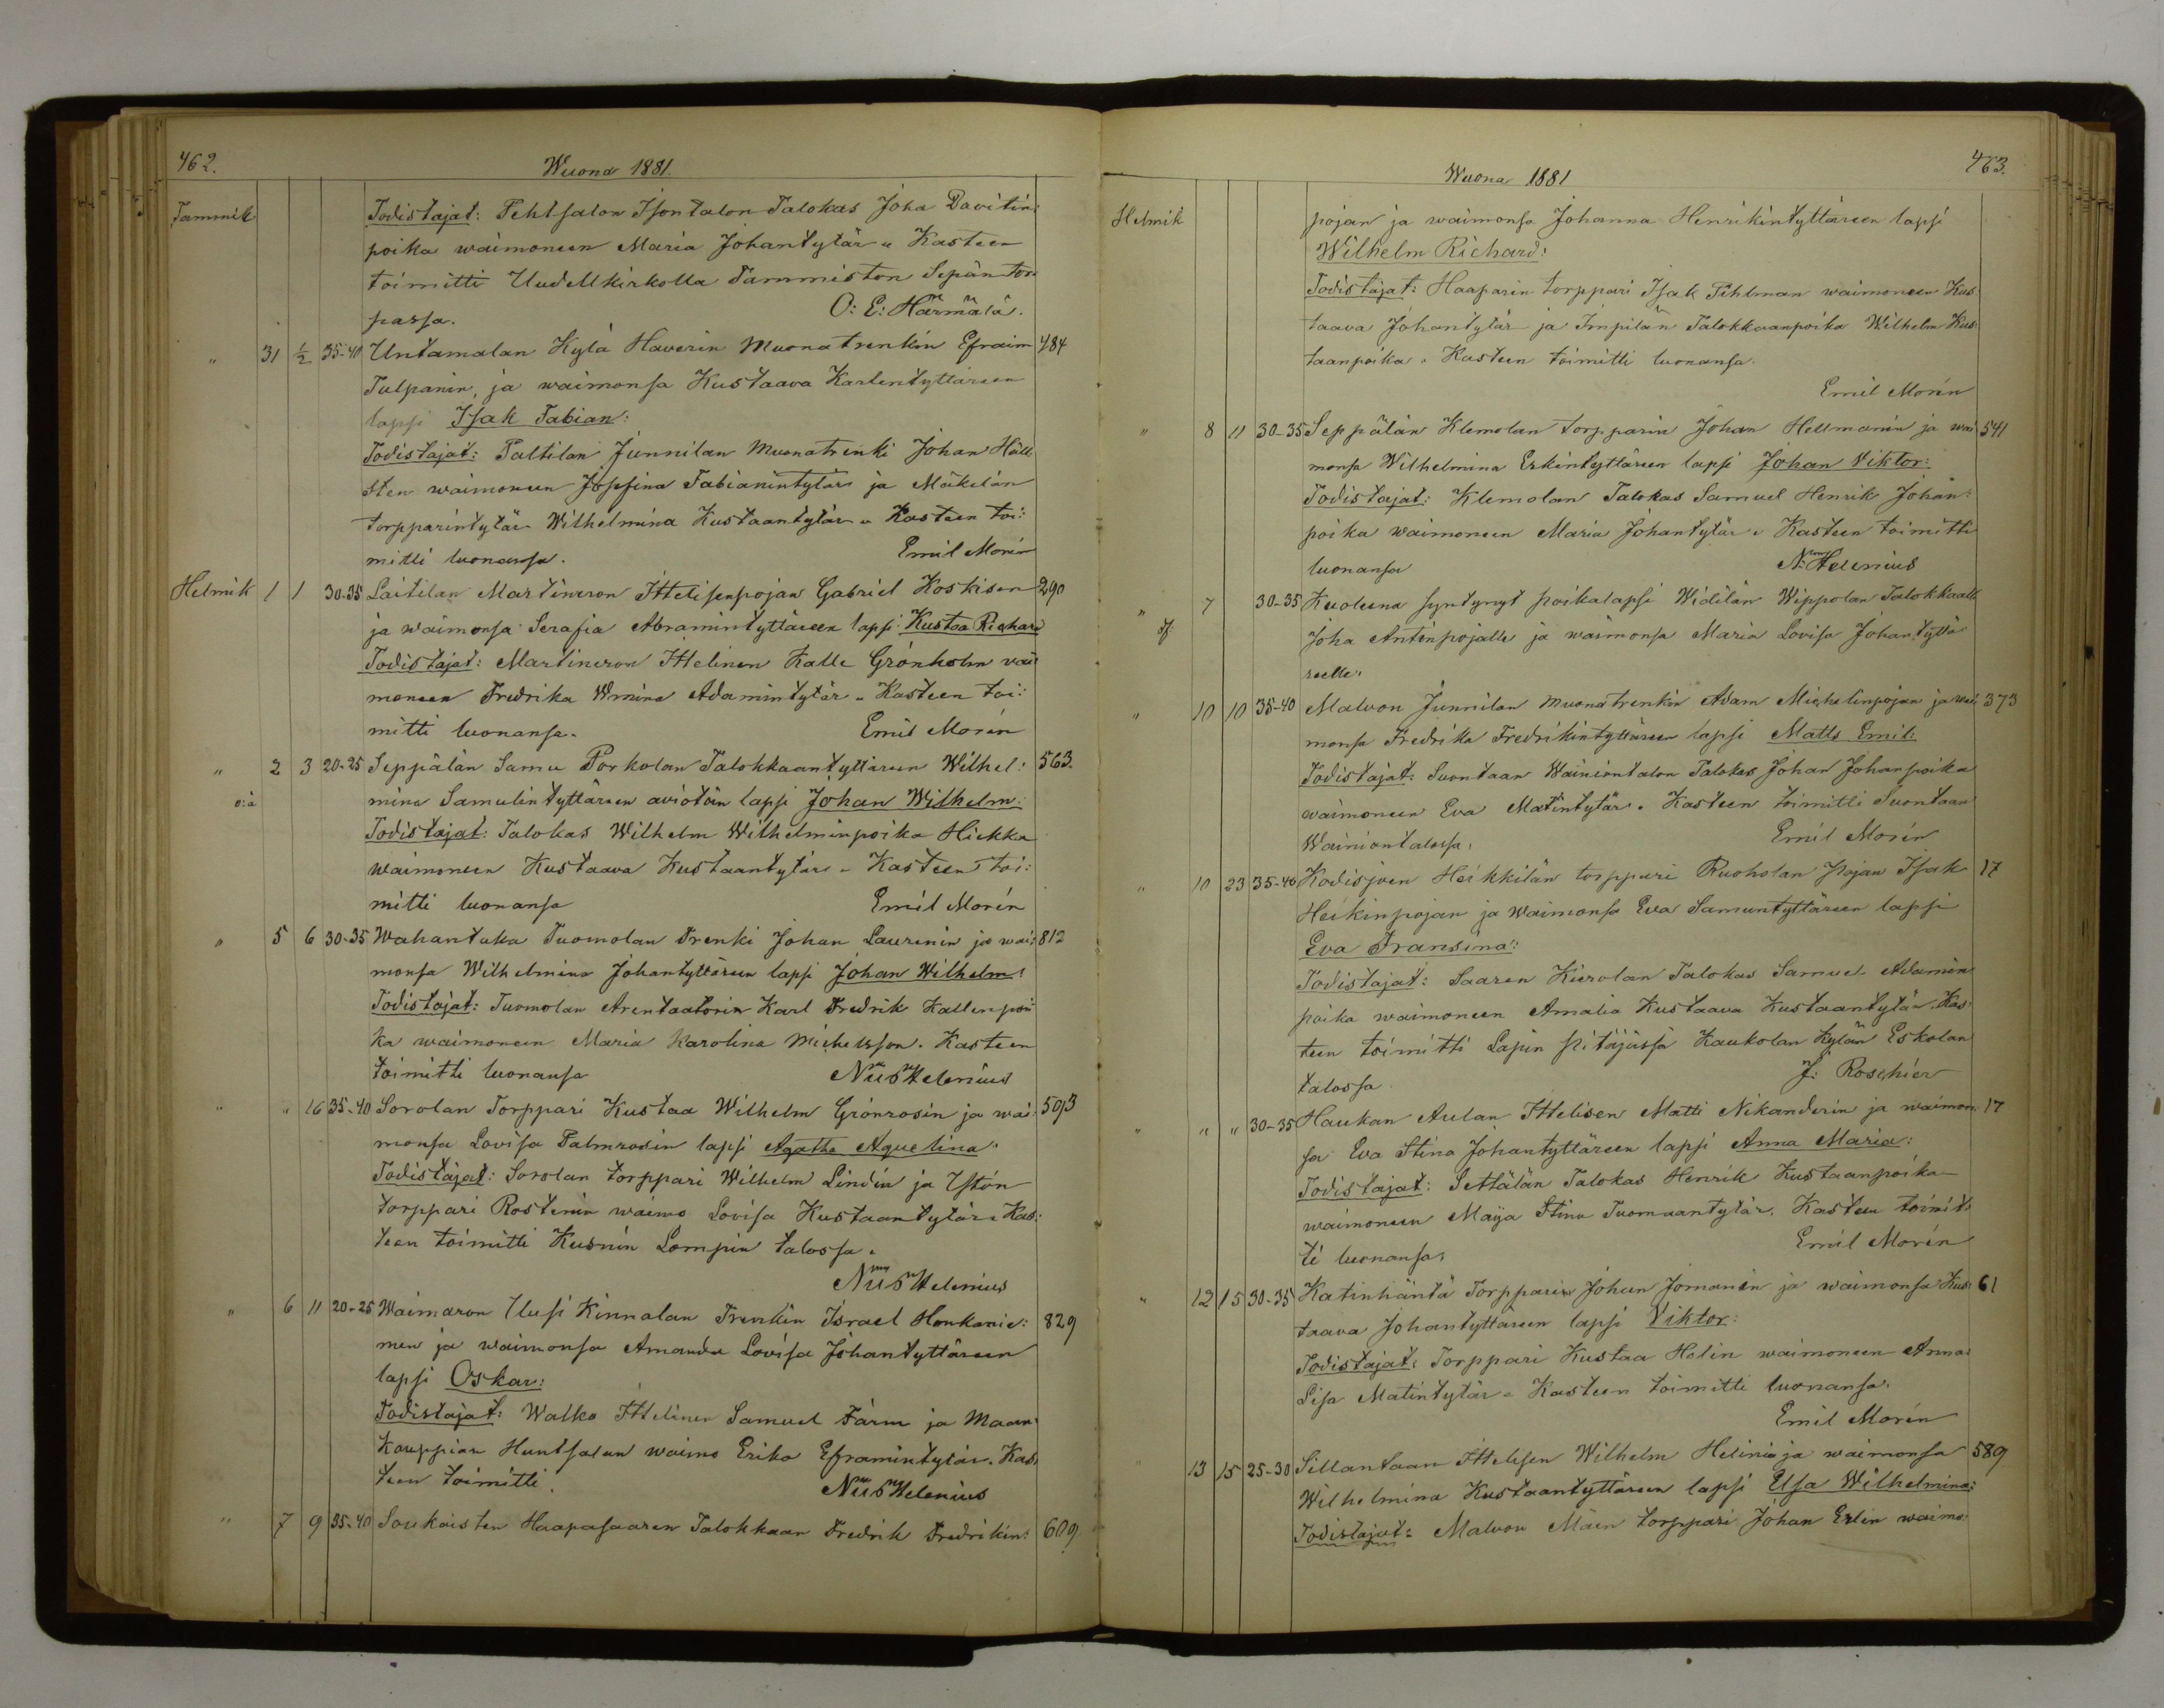 462.
Wuona 1881.
Tammik Todistajat: Tehtsalon Isontalon Talokas Joha Davitin:
poika waimoneen Maria Johantytär " Kasteen
toimitti Uudellkirkolla Tammiston Sepän tor
passa. O: E: Härmälä.
" 31 ½ 35-40 Untamalan Kylä Haverin Muonatrenkin Efraim 484
Tulpanin, ja waimonsa Kustaava Karlentyttäreen
lapsi Isak Fabian:
Todistajat: Taltilan Junnilan Muonatrenki Johan Häll
sten waimoneen Josefina Fabianintytär ja Mäkelän
torpparintytär Wilhelmina Kustaantytär " Kasteen toi:
mitti luonansa. Emil Morén
Helmik 1 1 30-35 Laitilan Martineron Ittelisenpojan Gabriel Koskisen 290
ja waimonsa Serafia Abramintyttäreen lapsi Kustaa Richard
Todistajat: Martineron Ittelinen Kalle Grönholm vai
moneen Fredrika Wmina Adamintytär " Kasteen toi:
mitti luonansa. Emil Morén
" 2 3 20-25 Seppälän Samu Porkolan Talokkaantyttäreen Wilhel: 563.
o:ä mina Samulintyttäreen aviotön lapsi Johan Wilhelm:
Todistajat: Talokas Wilhelm Wilhelminpoika Hiekka
waimoneen Kustaava Kustaantytär " Kasteen toi:
mitti luonansa Emil Morén
" 5 6 30-35 Wahantaka Tuomolan Trenki Johan Laurenin ja wai: 812
monsa Wilhelmina Johantyttäreen lapsi Johan Wilhelm:
Todistajat: Tuomolan Arentaatorin Karl Fredrik Kallenpoi
ka waimoneen Maria Karolina Michelsson. Kasteen
toimitti luonansa Nils Helenius
" " 16 35-40 Sorolan Torppari Kustaa Wilhelm Grönrosin ja wai: 503
monsa Lovisa Palmrosin lapsi Agatha Aquelina:
Todistajat: Sorolan torppari Wilhelm Lindin ja Ystön
torppari Rostenin waimo Lovisa Kustaantytär " Kas:
teen toimitti Kusnin Lompin talossa.
Nils Helenius
" 6 11 20-25 Waimaron Uusi Kinnalan Trenkin Israel Honkanie: 829
men ja waimonsa Amanda Lovisa Johantyttäreen
lapsi Oskar:
Todistajat: Walko Ittelinen Samuel Färm ja Maan
kauppian Huntsalan waimo Erika Eframintytär. Kas
teen toimitti. Nils Helenius
" 7 9 35-40 Soukaisten Haapasaaren Talokkaan Fredrik Fredrikin: 609
463.
Wuona 1881
Helmik pojan ja waimonsa Johanna Henrikintyttäreen lapsi
Wilhelm Richard:
Todistajat: Haaparin torppari Isak Fihlman waimoneen Kus
taava Johantytär ja Impilän Talokkaanpoika Wilhelm Kus
taanpoika. Kasteen toimitti luonansa.
Emil Morén
" 8 11 30-35 Seppälän Klemolan torpparin Johan Hellmanin ja wai 541
monsa Wilhelmina Erkintyttäreen lapsi Johan Viktor:
Todistajat: Klemolan Talokas Samuel Henrik Johan:
poika waimoneen Maria Johantytär " Kasteen toimitti
luonansa N: Helenius
" 7 30-35 Kuoleena syntynyt poikalapsi Widilän Wippolan Talokkaall
Joha Antinpojalle ja waimonsa Maria Lovisa Johantyttä
reelle.
" 10 10 35-40 Malvon Junnilan muonatrenkin Adam Michelinpojan ja wai 373
monsa Fredrika Fredrikintyttäreen lapsi Matts Emil:
Todistajat: Suontaan Wainiontalon Talokas Johan Johanpoika
waimoneen Eva Matintytär. Kasteen toimitti Suontaan
Wainiontalossa. Emil Morén
" 10 23 35-40 Kodisjoen Heikkilän torppari Ruoholan pojan Isak 17
Heikinpojan ja Waimonsa Eva Samuntyttäreen lapsi
Eva Fransina:
Todistajat: Saaren Kierolan Talokas Samuel Adamin
poika waimoneen Amalia Kustaava Kustaantytär. Kas:
teen toimitti Lapin pitäjässä Kaukolan Kylän Eskolan
talossa. J: Roschier
" " " 30-35 Haukan Aulan Ittelisen Matti Nikanderin ja waimon 17
sa Eva Stina Johantyttäreen lapsi Anna Maria:
Todistajat: Settälän Talokas Henrik Kustaanpoika
waimoneen Maija Stina Tuomaantytär. Kasteen toimit:
ti luonansa. Emil Morén
" 12 15 30-35 Katinhäntä Torpparin Johan Jomanin ja waimonsa Kus: 61
taava Johantyttäreen lapsi Viktor:
Todistajat: Torppari Kustaa Helin waimoneen Anna
Lisa Matintytär " Kasteen toimitti luonansa.
Emil Morén
" 13 15 25-30 Sillantaan Ittelisen Wilhelm Helinin ja waimonsa 589
Wilhelmina Kustaantyttäreen lapsi Elsa Wilhelmina:
Todistajat: Malvon Maen torppari Johan Erlin waimo: